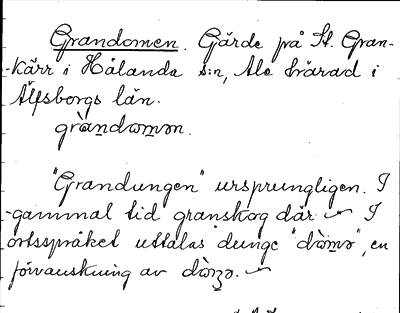 Grandomen. Gärde på St. Gran-
-kärr i Hålanda s:n, Ale härad i
Älfsborgs län.
gràndωmən.
"Grandungen" ursprungligen. I
gammal tid granskog där. I
ortsspråket uttalas dunge "dωmə", en
förvanskning av